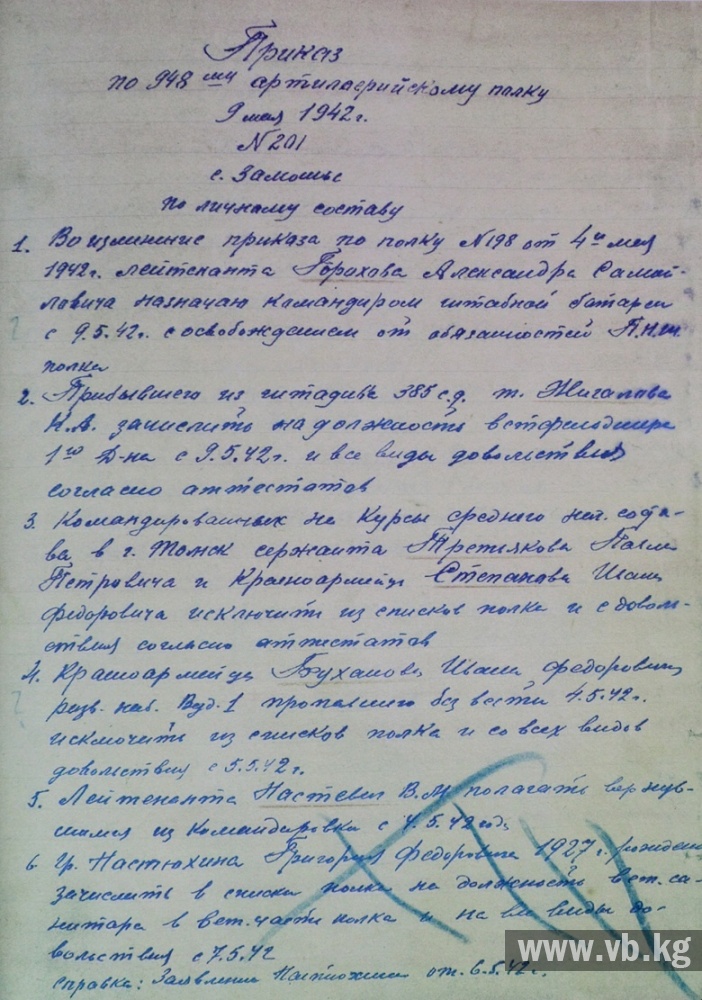 Приказ
по 948 му артилерийскому полку
9 мая 1942 г.
N 201
с. Замошье
по личному составу
1. Во изминение приказа по полку N 198 от 4го мая
1942 г. лейтенанта Горохова Александра Самой-
ловича назначаю командиром штабной батареи
с 9.5.42 г. с освобождением от обязаностей П.Н.Ш.
полка
2. Прибывшего из штадива 385 с.д. т. Жигалова
Н.А. зачислить на должность ветфельдшера
1го Д-на с 9.5.42 г. и все виды доволствия
согласно аттестатов
3. Командированных на курсы среднего нач. соста-
ва в г. Томск сержанта Третьякова Павла
Петровича и Красноармейца Степанова Ивана
Федоровича исключить из списков полка и с доволь-
ствия согласно аттистатов
4. Красноармейца Буханова Ивана Федоровича
разв. наб. 1 пропавшего без вести 4.5.42 г.
исключить из списков полка и со всех видов
довольствия с 5.5.42 г.
5. Лейтенанта Настевич В.М. полагать вернув-
шимся из командировки с 4.5.42 года
6. Гр. Настюхина Григория Федоровича 1927 г. рождения
зачислить в списки полка на должность вет. са-
нитара в вет. части полка и на все виды до-
вольствия с 7.5.42
справка: Заявление Настюхина от 6.5.42 г.
www.vb.kg